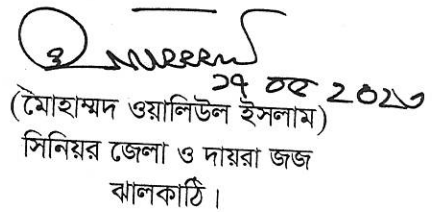 ২৭ ০৫ ২০২৩
(মোহাম্মদ ওয়ালিউল ইসলাম)
সিনিয়র জেলা ও দায়রা জজ
ঝালকাঠি।